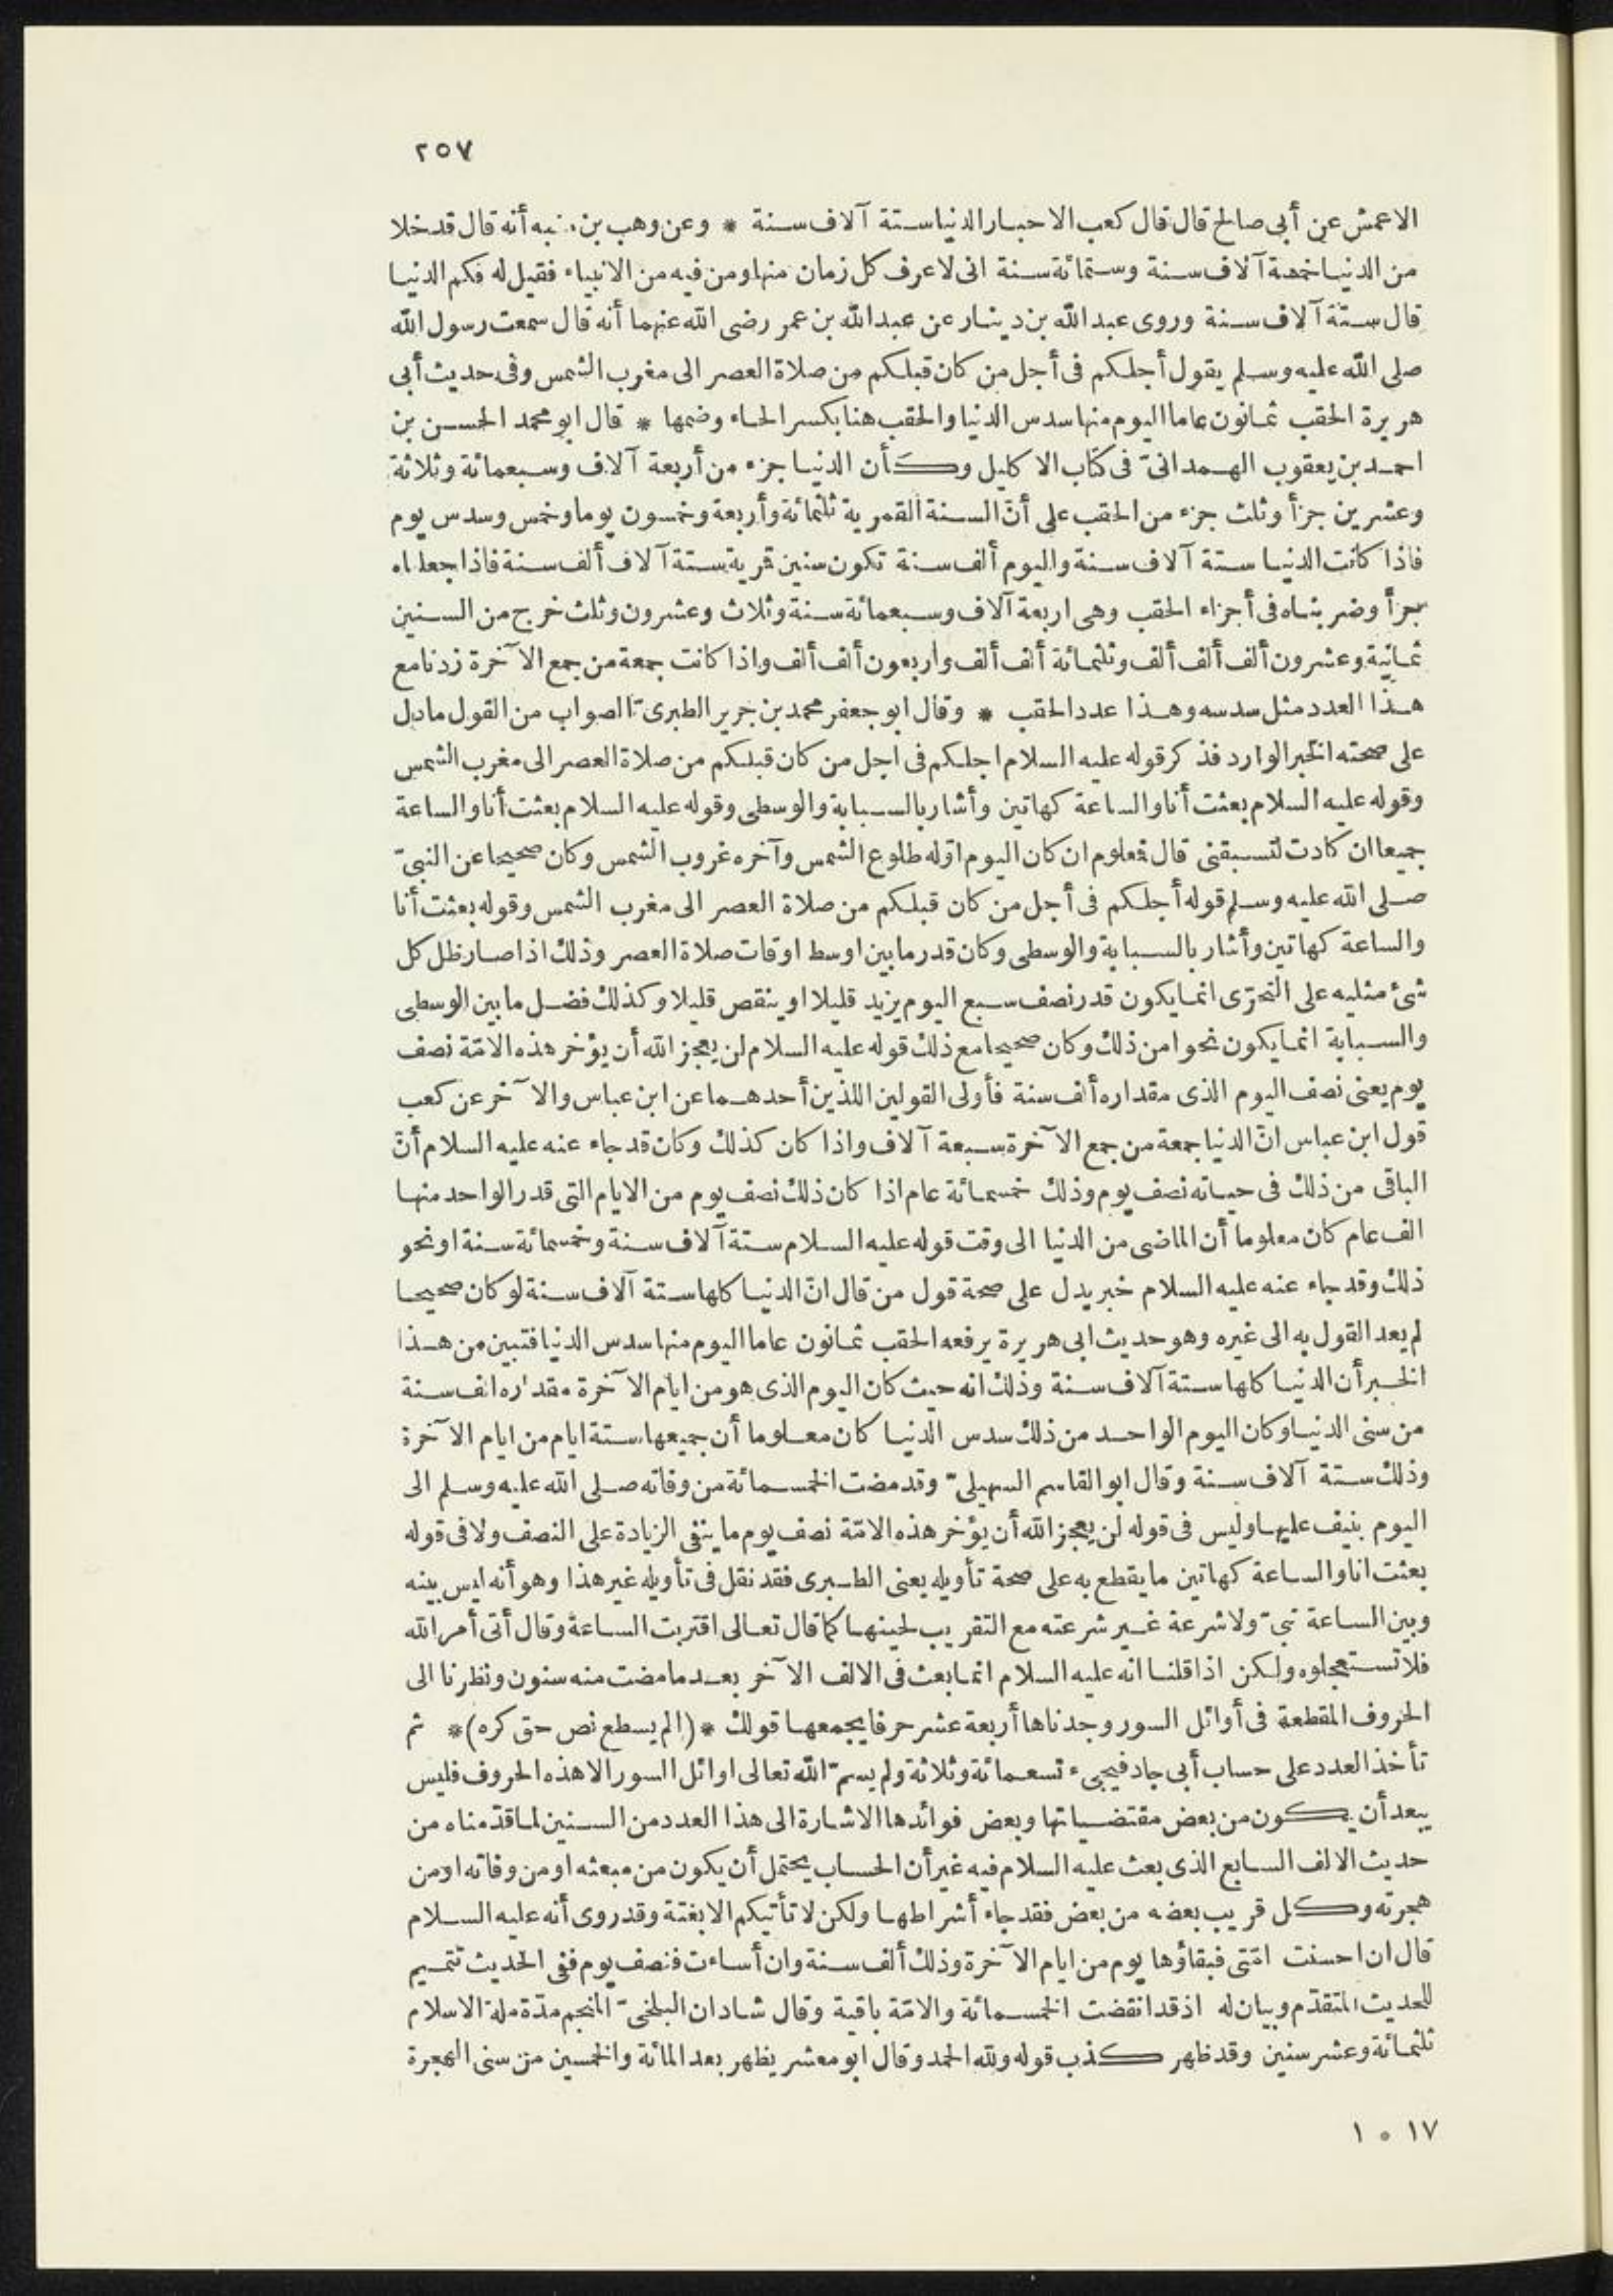 ٢٥٧
الاعمش عن أبى صالح قال قال كعب الاحبار الدنيا ستة آلاف سنة * وعن وهب بن منبه أنه قال قد خلا
من الدنيا خمسة آلاف سنة وستمائة سنة انى لاعرف كل زمان منها ومن فيه من الانبياء فقيل له فكم الدنيا
قال ستة آلاف سنة وروى عبد الله بن دينار عن عبد الله بن عمر رضى الله عنهما أنه قال سمعت رسول الله
صلى الله عليه وسلم يقول أجلكم فى أجل من كان قبلكم من صلاة العصر الى مغرب الشمس وفى حديث أبى
هريرة الحقب ثمانون عاما اليوم منها سدس الدنيا والحقب هنا بكسر الحاء وضمها * قال ابو محمد الحسن بن
احمد بن يعقوب الهمدانىّ فى كتاب الاكليل وكأن الدنيا جزء من أربعة آلاف وسبعمائة وثلاثة
وعشرين جزأ وثلث جزء من الحقب على أنّ السنة القمرية ثلثمائة وأربعة وخمسون يوما وخمس وسدس يوم
فاذا كانت الدنيا ستة آلاف سنة واليوم ألف سنة تكون سنين قمرية ستة آلاف ألف سنة فاذا جعلناه
جزأ وضربناه فى أجزاء الحقب وهى اربعة آلاف وسبعمائة سنة وثلاث وعشرون وثلث خرج من السنين
ثمانية وعشرون ألف ألف ألف وثلثمائة ألف ألف وأربعون ألف ألف واذا كانت جمعة من جمع الآخرة زدنا مع
هذا العدد مثل سدسه وهذا عدد الحقب * وقال ابو جعفر محمد بن جرير الطبرىّ الصواب من القول ما دل
على صحته الخبر الوارد فذكر قوله عليه السلام اجلكم فى اجل من كان قبلكم من صلاة العصر الى مغرب الشمس
وقوله عليه السلام بعثت أنا والساعة كهاتين وأشار بالسبابة والوسطى وقوله عليه السلام بعثت أنا والساعة
جميعا ان كادت لتسبقنى قال فمعلوم ان كان اليوم اوّله طلوع الشمس وآخره غروب الشمس وكان صحيحا عن النبىّ
صلى الله عليه وسلم قوله أجلكم فى أجل من كان قبلكم من صلاة العصر الى مغرب الشمس وقوله بعثت أنا
والساعة كهاتين وأشار بالسبابة والوسطى وكان قدر ما بين اوسط اوقات صلاة العصر وذلك اذا صار ظل كل
شئ مثليه على التحرّى انما يكون قدر نصف سبع اليوم يزيد قليلا او ينقص قليلا وكذلك فضل ما بين الوسطى
والسبابة انما يكون نحوا من ذلك وكان صحيحا مع ذلك قوله عليه السلام لن يعجز الله أن يؤخر هذه الامّة نصف
يوم يعنى نصف اليوم الذى مقداره ألف سنة فأولى القولين اللذين أحدهما عن ابن عباس والآخر عن كعب
قول ابن عباس انّ الدنيا جمعة من جمع الآخرة سبعة آلاف واذا كان كذلك وكان قد جاء عنه عليه السلام أنّ
الباقى من ذلك فى حياته نصف يوم وذلك خمسمائة عام اذا كان ذلك نصف يوم من الايام التى قدر الواحد منها
الف عام كان معلوما أن الماضى من الدنيا الى وقت قوله عليه السلام ستة آلاف سنة وخمسمائة سنة او نحو
ذلك وقد جاء عنه عليه السلام خبر يدل على صحة قول من قال انّ الدنيا كلها ستة آلاف سنة لو كان صحيحا
لم يعد القول به الى غيره وهو حديث ابى هريرة يرفعه الحقب ثمانون عاما اليوم منها سدس الدنيا فتبين من هذا
الخبر أن الدنيا كلها ستة آلاف سنة وذلك انه حيث كان اليوم الذى هو من ايام الآخرة مقداره الف سنة
من سنى الدنيا وكان اليوم الواحد من ذلك سدس الدنيا كان معلوما أن جميعها ستة ايام من ايام الآخرة
وذلك ستة آلاف سنة وقال ابو القاسم السهيلىّ وقد مضت الخمسمائة من وفاته صلى الله عليه وسلم الى
اليوم بنيف عليها وليس فى قوله لن يعجز الله أن يؤخر هذه الامّة نصف يوم ما ينفى الزيادة على النصف ولا فى قوله
بعثت انا والساعة كهاتين ما يقطع به على صحة تأويله يعنى الطبرى فقد نقل فى تأويله غير هذا وهو أنه ليس بينه
وبين الساعة نبىّ ولا شرعة غير شرعته مع التقريب لحينها كما قال تعالى اقتربت الساعة وقال أتى أمر الله
فلا تستعجلوه ولكن اذا قلنا انه عليه السلام انما بعث فى الالف الآخر بعد ما مضت منه سنون ونظرنا الى
الحروف المقطعة فى أوائل السور وجدناها أربعة عشر حرفا يجمعها قولك * (الم يسطع نص حق كره) * ثم
تأخذ العدد على حساب أبى جاد فيجىء تسعمائة وثلاثة ولم يسمّ الله تعالى اوائل السور الا هذه الحروف فليس
يبعد أن يكون من بعض مقتضياتها وبعض فوائدها الاشارة الى هذا العدد من السنين لما قدّمناه من
حديث الالف السابع الذى بعث عليه السلام فيه غير أن الحساب يحتمل أن يكون من مبعثه او من وفاته او من
هجرته وكل قريب بعضه من بعض فقد جاء أشراطها ولكن لا تأتيكم الا بغتة وقد روى أنه عليه السلام
قال ان احسنت امّتى فبقاؤها يوم من ايام الآخرة وذلك ألف سنة وان أساءت فنصف يوم ففى الحديث تتميم
للحديث المتقدّم وبيان له اذ قد انقضت الخمسمائة والامّة باقية وقال شادان البلخىّ المنجم مدّة ملة الاسلام
ثلثمائة وعشر سنين وقد ظهر كذب قوله ولله الحمد وقال ابو معشر يظهر بعد المائة والخمسين من سنى الهجرة
١٧ ٥ ١